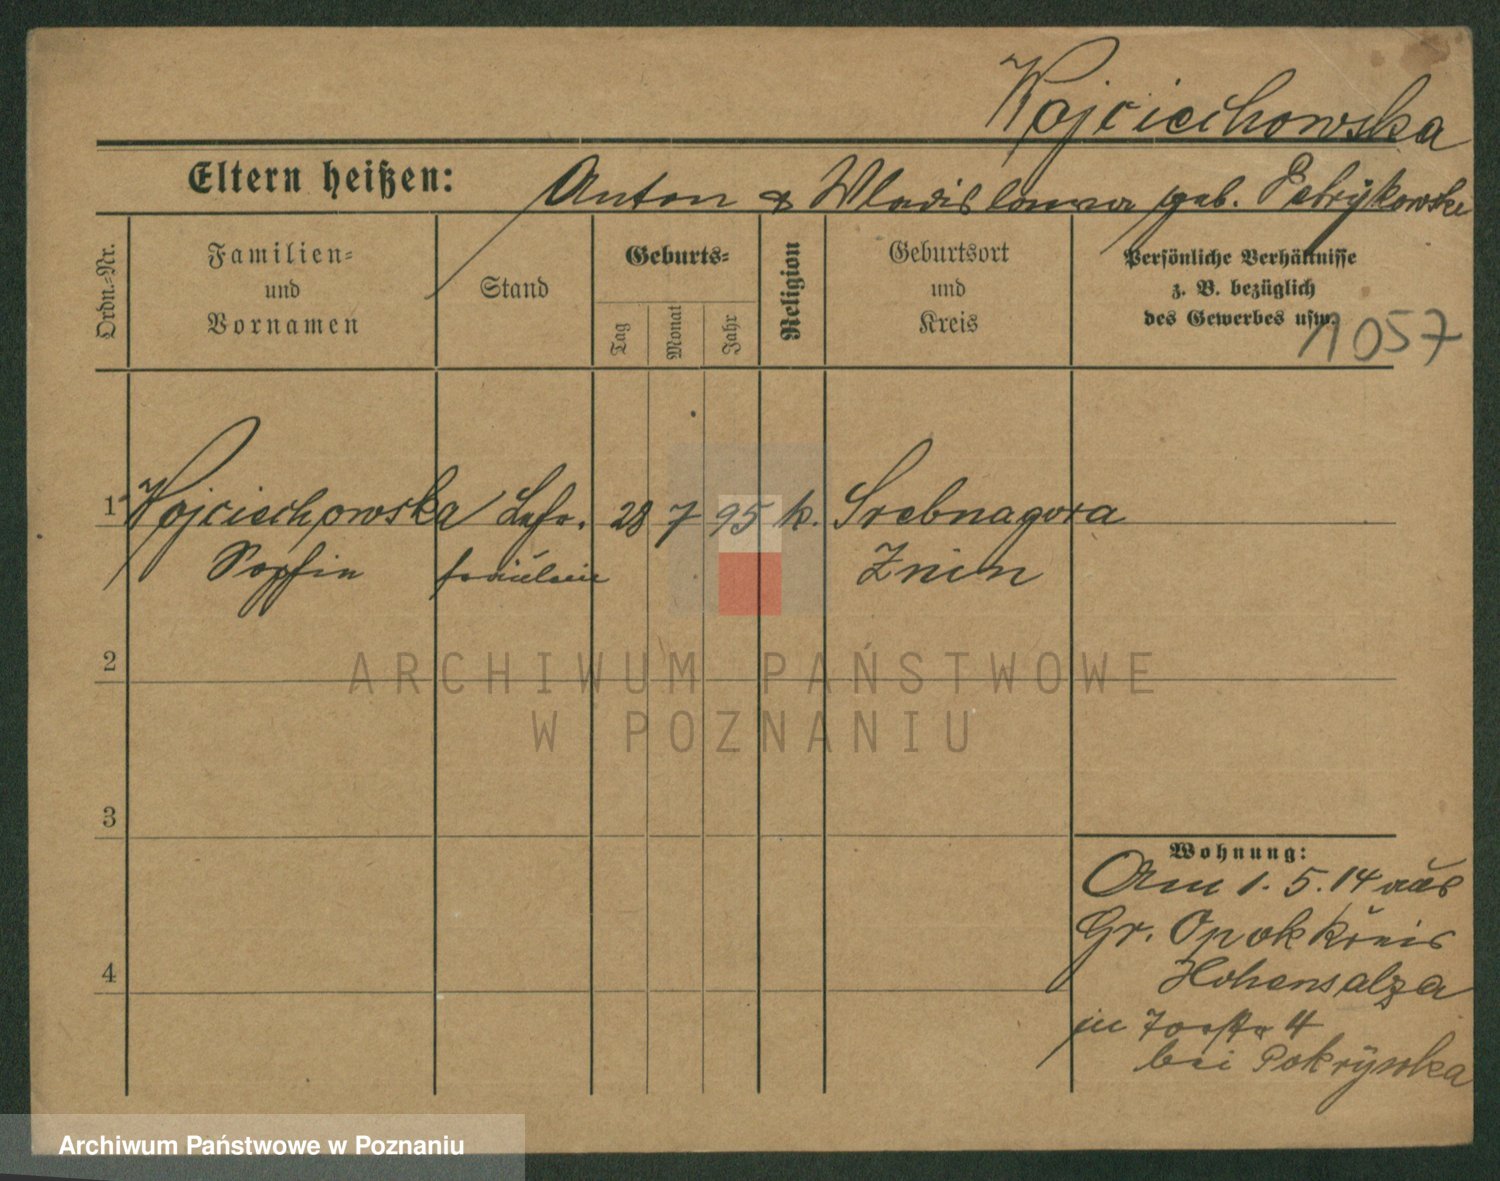 Wojciechowska
Eltern heißen: Anton & Wladislawa geb. Petrykowska
Ordn.-Nr.
Familien-
und
Vornamen
Stand
Geburts-
Tag
Monat
Jahr
Religion
Geburtsort
und
Kreis
Persönliche Verhältnisse
z. B. bezüglich
des Gewerbes usw.
1057
1 Wojciechowska Lehr. 28 7 95 k. Srebnagora
Sophie fräulein Znin
2
3
4
Wohnung:
Am 1. 5. 14 aus
Gr. Opok Kreis
Hohensalza
in 4
bei Pokrywka
ARCHIWUM PAŃSTWOWE
W POZNANIU
Archiwum Państwowe w Poznaniu